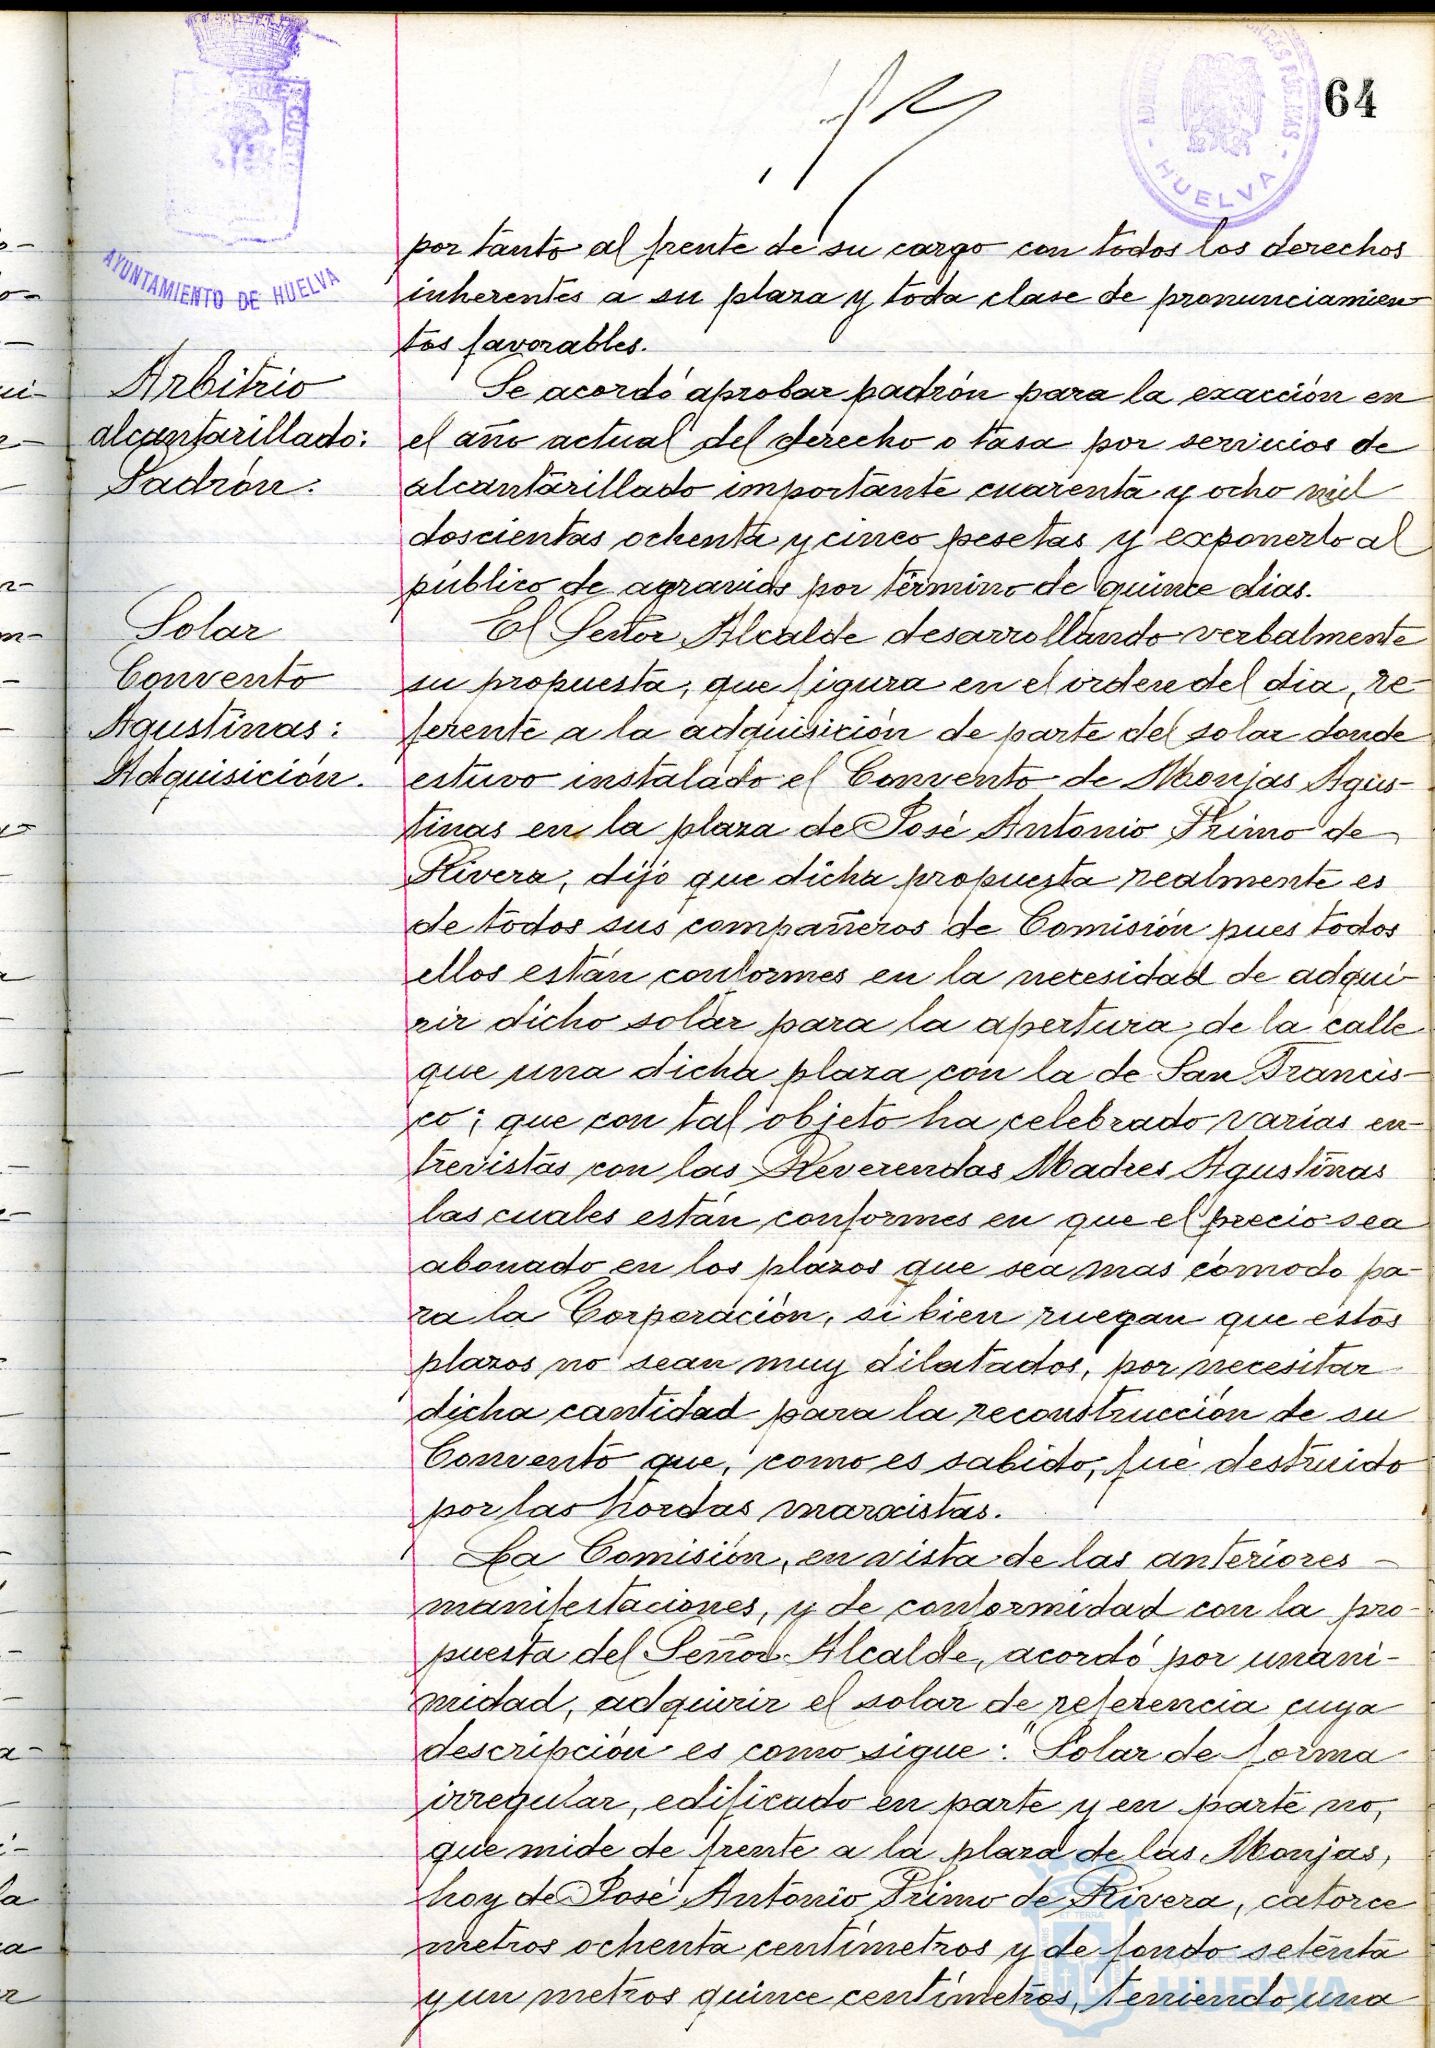 64
AYUNTAMIENTO DE HUELVA
HUELVA
por tanto al frente de su cargo con todos los derechos
inherentes a su plaza y toda clase de pronunciamien
tos favorables.
Arbitrio
alcantarillado:
Padrón.
Se acordó aprobar padrón para la exacción en
el año actual del derecho o tasa por servicios de
alcantarillado importante cuarenta y ocho mil
doscientas ochenta y cinco pesetas y exponerlo al
público de agravios por término de quince dias.
Solar
Convento
Agustinas:
Adquisición.
El Señor Alcalde desarrollando verbalmente
su propuesta, que figura en el orden del dia, re-
ferente a la adquisición de parte del solar donde
estuvo instalado el Convento de Monjas Agus-
tinas en la plaza de José Antonio Primo de
Rivera, dijo que dicha propuesta realmente es
de todos sus compañeros de Comisión pues todos
ellos están conformes en la necesidad de adqui-
rir dicho solar para la apertura de la calle
que una dicha plaza con la de San Francis-
co; que con tal objeto ha celebrado varias en-
trevistas con las Reverendas Madres Agustinas
las cuales están conformes en que el precio sea
abonado en los plazos que sea mas cómodo pa-
ra la Corporación, si bien ruegan que estos
plazos no sean muy dilatados, por necesitar
dicha cantidad para la reconstrucción de su
Convento que, como es sabido, fué destruido
por las hordas marxistas.
La Comisión, en vista de las anteriores -
manifestaciones, y de conformidad con la pro-
puesta del Señor Alcalde, acordó por unani-
midad, adquirir el solar de referencia cuya
descripción es como sigue: "Solar de forma
irregular, edificado en parte y en parte no,
que mide de frente a la plaza de las Monjas,
hoy de José Antonio Primo de Rivera, catorce
metros ochenta centímetros y de fondo setenta
y un metros quince centímetros, teniendo una
Ayuntamiento de
HUELVA